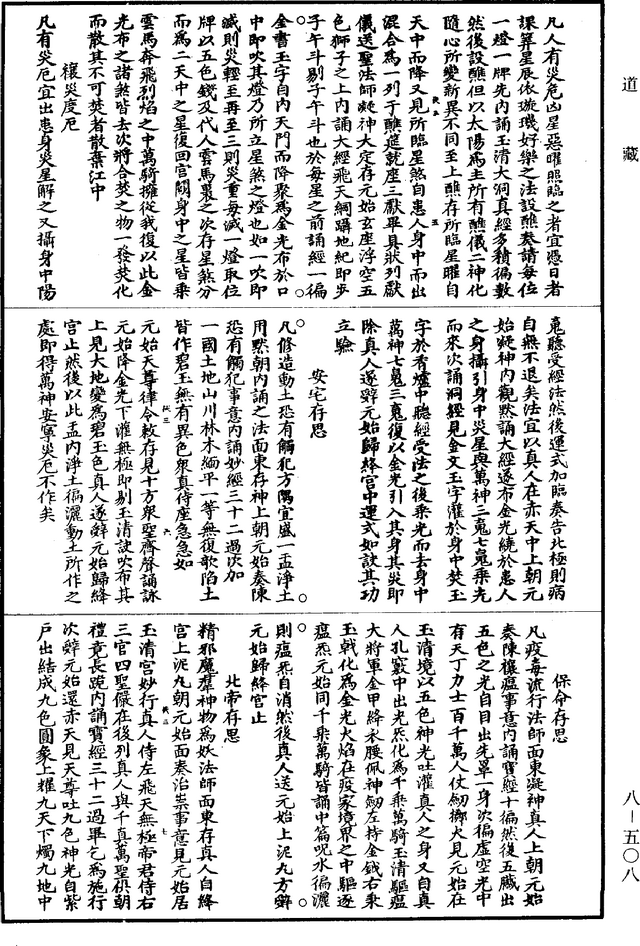 道藏
凡人有災厄凶星惡曜照臨之者宜憑日者
課筭星辰依璇璣好樂之法設醮奏請每位
一燈一牌先內誦玉清大洞真經多積徧數
然後設醮但以太陽為主所有醮儀二神化
隨心所變新異不同至上醮存所臨星曜自
天中而降又見所臨星煞自患人身中而出
混合為一列于醮筵就座三獻畢具狀列厭
儀送聖法師凝神大定存元始玄座浮空五
色獅子之上內誦大經飛天綱躡地紀即步
子午斗剔子午斗也於每星之前誦經一徧
金書玉字自內天門而降聚為金光布於口
中即吹其燈乃所立星煞之燈也如一吹即
滅則災輕至再至三則災重每滅一燈取位
牌以五色錢及代人雲馬裹之次存星煞分
而為二天中之星復回宮闕身中之星皆乘
雲馬奔飛烈焰之中萬騎擁從我復以此金
光布之諸煞皆去次將合焚之物一發焚化
而散其不可焚者散棄江中
禳災度厄
凡有災厄宜出患身災星解之又攝身中陽
䰟聽受經法然後運式加臨奏告北極則病
自無不退矣法宜以真人在赤天中上朝元
始凝神內觀默誦大經遂布金光繞於患人
之身攝引身中災星與萬神三䰟七䰟乘光
而來次誦洞經見金文玉字灌於身中焚玉
字於香爐中聽經受法之後乘光而去身中
萬神七䰟三䰟復以金光引入其身其災即
除真人遂辭元始歸絳宮中運式如設其功
立驗
安宅存思
凡修造動土恐有觸犯方隅宜盛一盂淨土
用默朝內誦之法面東存神上朝元始奏陳
恐有觸犯事意內誦妙經三十二過次加
一國土地山川林木緬平一等無復歌陷土
皆作碧玉無有異色眾真侍座急急如
元始天尊律令敕存見十方眾聖齊聲誦詠
元始降金光下灌無極即剔玉清訣吹布其
上見大地變為碧玉色真人遂辭元始歸絳
宮止然後以此盂內淨土徧灑動土所作之
處即得萬神安寧災厄不作矣
保命存思
凡疫毒流行法師面東凝神真人上朝元始
奏陳禳瘟事意內誦寶經十徧然後五臟出
五色之光自目出先罩一身次徧虛空光中
有天丁力士百千萬人仗劒擲火見元始在
玉清境以五色神光吐灌真人之身又自真
人孔竅中出光炁化為千乘萬騎玉清驅瘟
大將軍金甲絳衣腰佩神劒左持金鉞右秉
玉戟化為金光火焰在疫家境界之中驅逐
瘟炁元始同千乘萬騎皆誦中篇呪水徧灑
則瘟炁自消然後真人送元始上泥丸方辭
元始歸絳宮止
北帝存思
精邪魔羣神物為妖法師面東存真人自絳
宮上泥丸朝元始面奏治祟事意見元始居
玉清宮妙行真人侍左飛天無極帝君侍右
三官四聖儼在後列真人與千真萬聖俱朝
禮竟長跪內誦寶經三十二過畢乞為施行
次辭元始還赤天見天尊吐九色神光自紫
戶出結成九色圓象上耀九天下燭九地中
八－五〇八